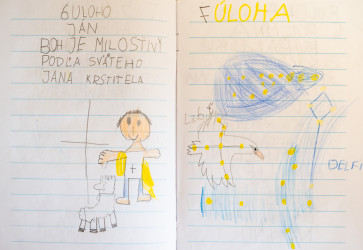 6 ULOHO
JÁN
BOH JE MILOSTNÝ
PODĽA SVÄTEHO
JANA KRSTITEĽA
FÚLOHA
DELFI